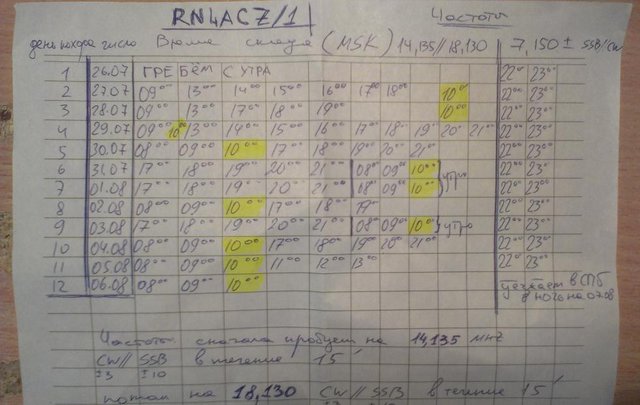 RN4ACZ/1
Частота
дени похода число Время схода (MSK) 14,135//18,130 7,150 ± SSB/CW
1 26.07 ГРЕБЁМ С УТРА 22°° 23°°
2 27.07 09°° 13°° 14°° 15°° 16°° 17°° 18°° 10°° 22°° 23°°
3 28.07 09°° 13°° 17°° 18°° 19°° 10°° 22°° 23°°
4 29.07 09°° 10°° 13°° 14°° 15°° 16°° 17°° 18°° 19°° 20°° 21°° 22°° 23°°
5 30.07 08°° 09°° 10°° 17°° 18°° 19°° 20°° 21°° 22°° 23°°
6 31.07 17°° 18°° 19°° 20°° 21°° 08°° 09°° 10°° утро 22°° 23°°
7 01.08 17°° 18°° 19°° 20°° 21°° 08°° 09°° 10°° 22°° 23°°
8 02.08 08°° 09°° 10°° 17°° 18°° 19°° 22°° 23°°
9 03.08 17°° 18°° 19°° 20°° 21°° 08°° 09°° 10°° утро 22°° 23°°
10 04.08 08°° 09°° 10°° 17°° 18°° 19°° 20°° 21°° 22°° 23°°
11 05.08 08°° 09°° 10°° 11°° 12°° 13°° 22°° 23°°
12 06.08 08°° 09°° 10°° уезжаем в СПб
в ночь на 07.08
Частота сначала пробуем на 14,135 МHz
CW// SSB в течение 15'
±3 ±10
потом на 18,130 CW// SSB в течение 15'